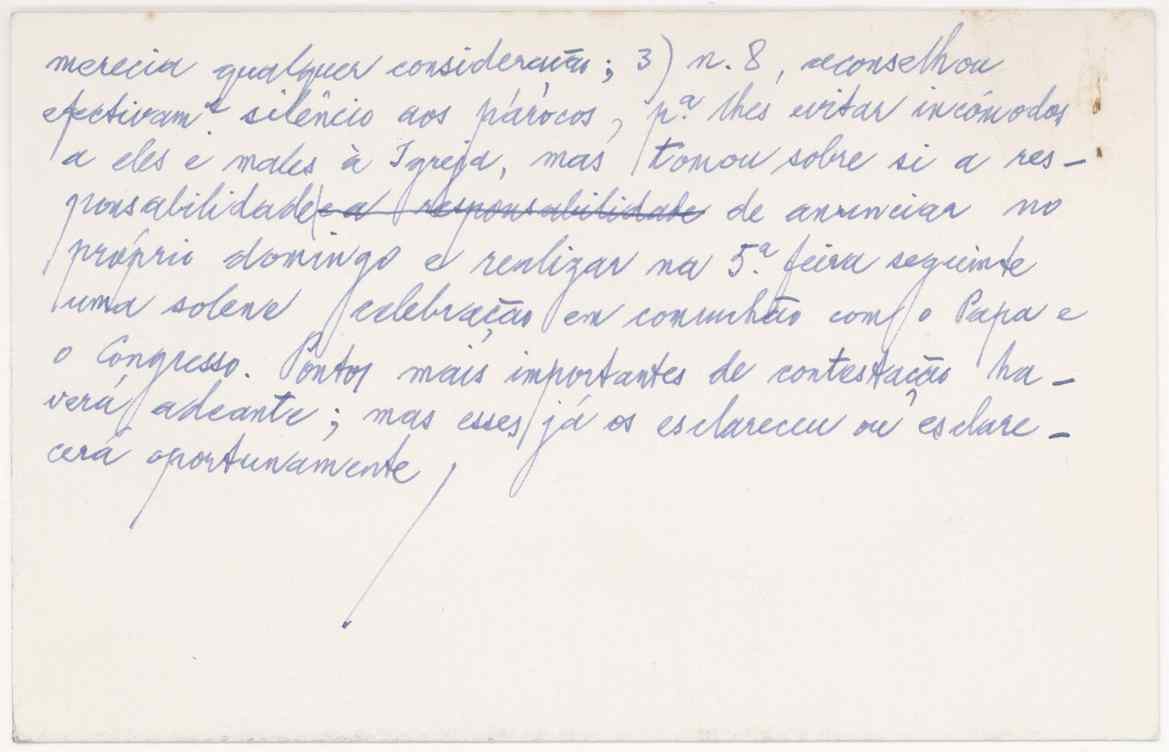 merecia qualquer consideração; 3) n. 8, aconselhou
efectivam.te silêncio aos párocos, p.a lhes evitar incómodos
a eles e males à Igreja, mas tomou sobre si a res-
ponsabilidade e a responsabilidade de anunciar no
próprio domingo e realizar na 5.a feira seguinte
uma solene celebração em comunhão com o Papa e
o Congresso. Pontos mais importantes de contestação ha-
verá adeante; mas esses já os esclareceu ou esclare-
cerá oportunamente